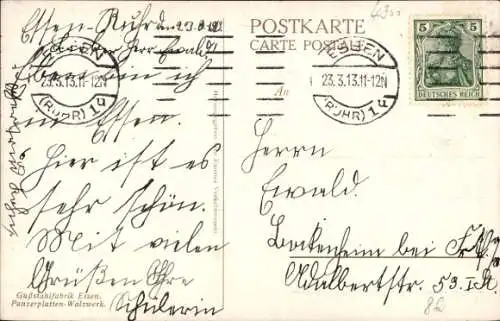 Essen-Ruhr
POSTKARTE
CARTE POSTALE
ESSEN
23.3.13.11-12N
(RUHR) 1q
ESSEN
23.3.13.11-12N
(RUHR) 1q
5 5
DEUTSCHES REICH
Lieber Herr Ewald!
Eben bin ich
in Essen.
Hier ist es
sehr schön.
Mit vielen
Grüßen Ihre
Schülerin
An
Herrn
Ewald.
Bockenheim bei Frkft.
Adalbertstr. 53. I.
Gußstahlfabrik Essen.
Panzerplatten-Walzwerk.
82